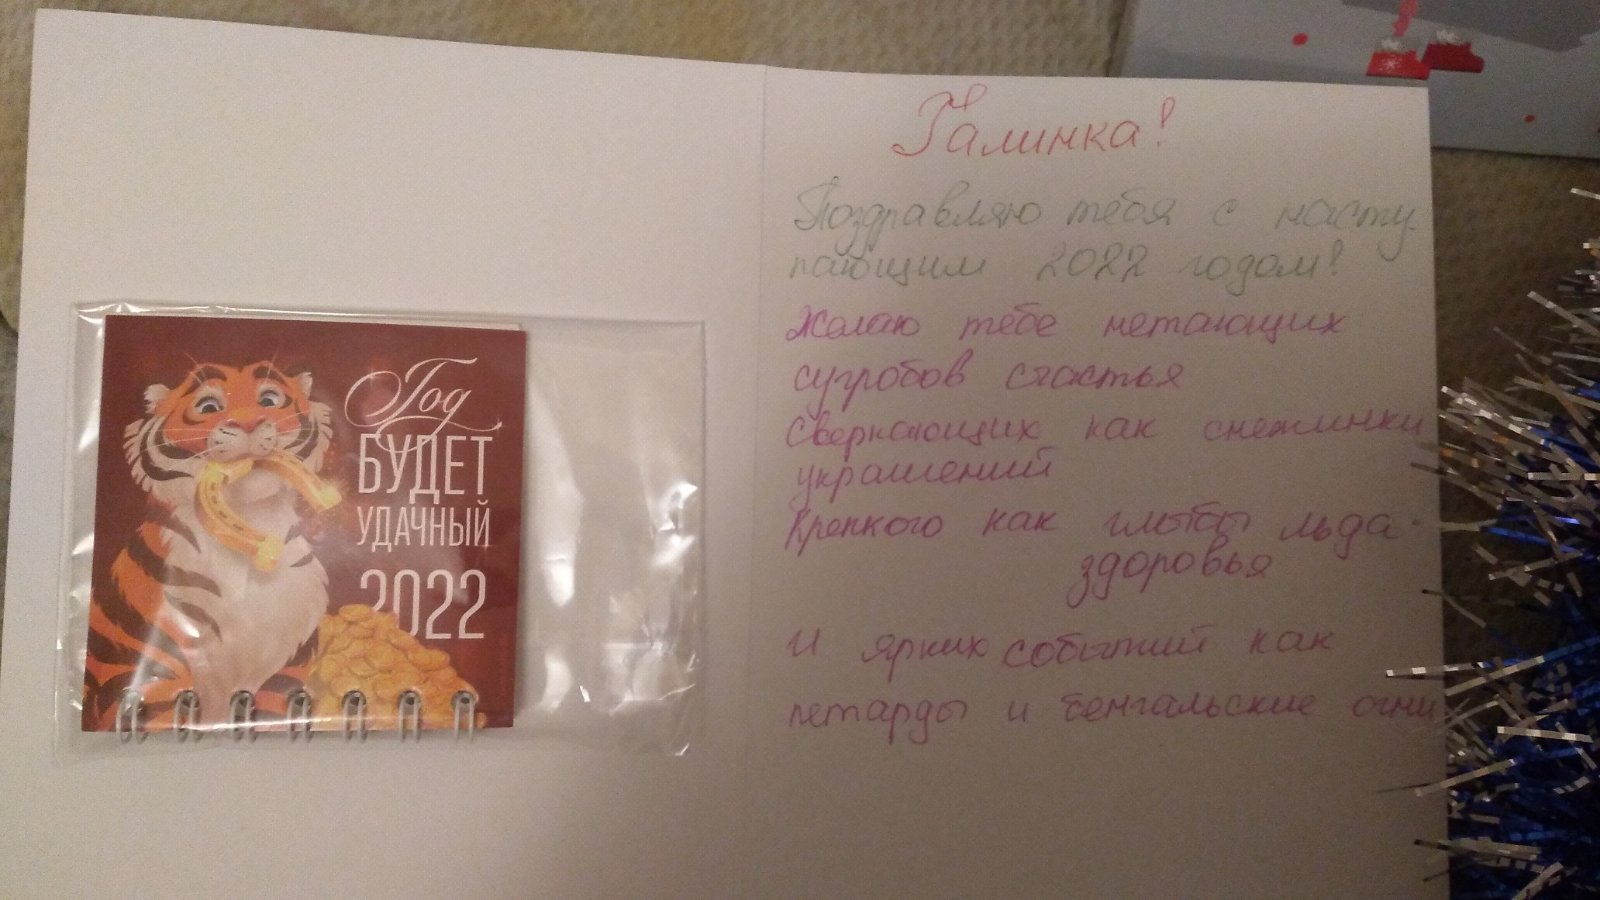 Год
БУДЕТ
УДАЧНЫЙ
2022
Галинка!
Поздравляю тебя с насту-
пающим 2022 годом!
Желаю тебе нетающих
сугробов счастья
Сверкающих как снежинки
украшений
Крепкого как глыбы льда
здоровья
И ярких событий как
петарды и бенгальские огни